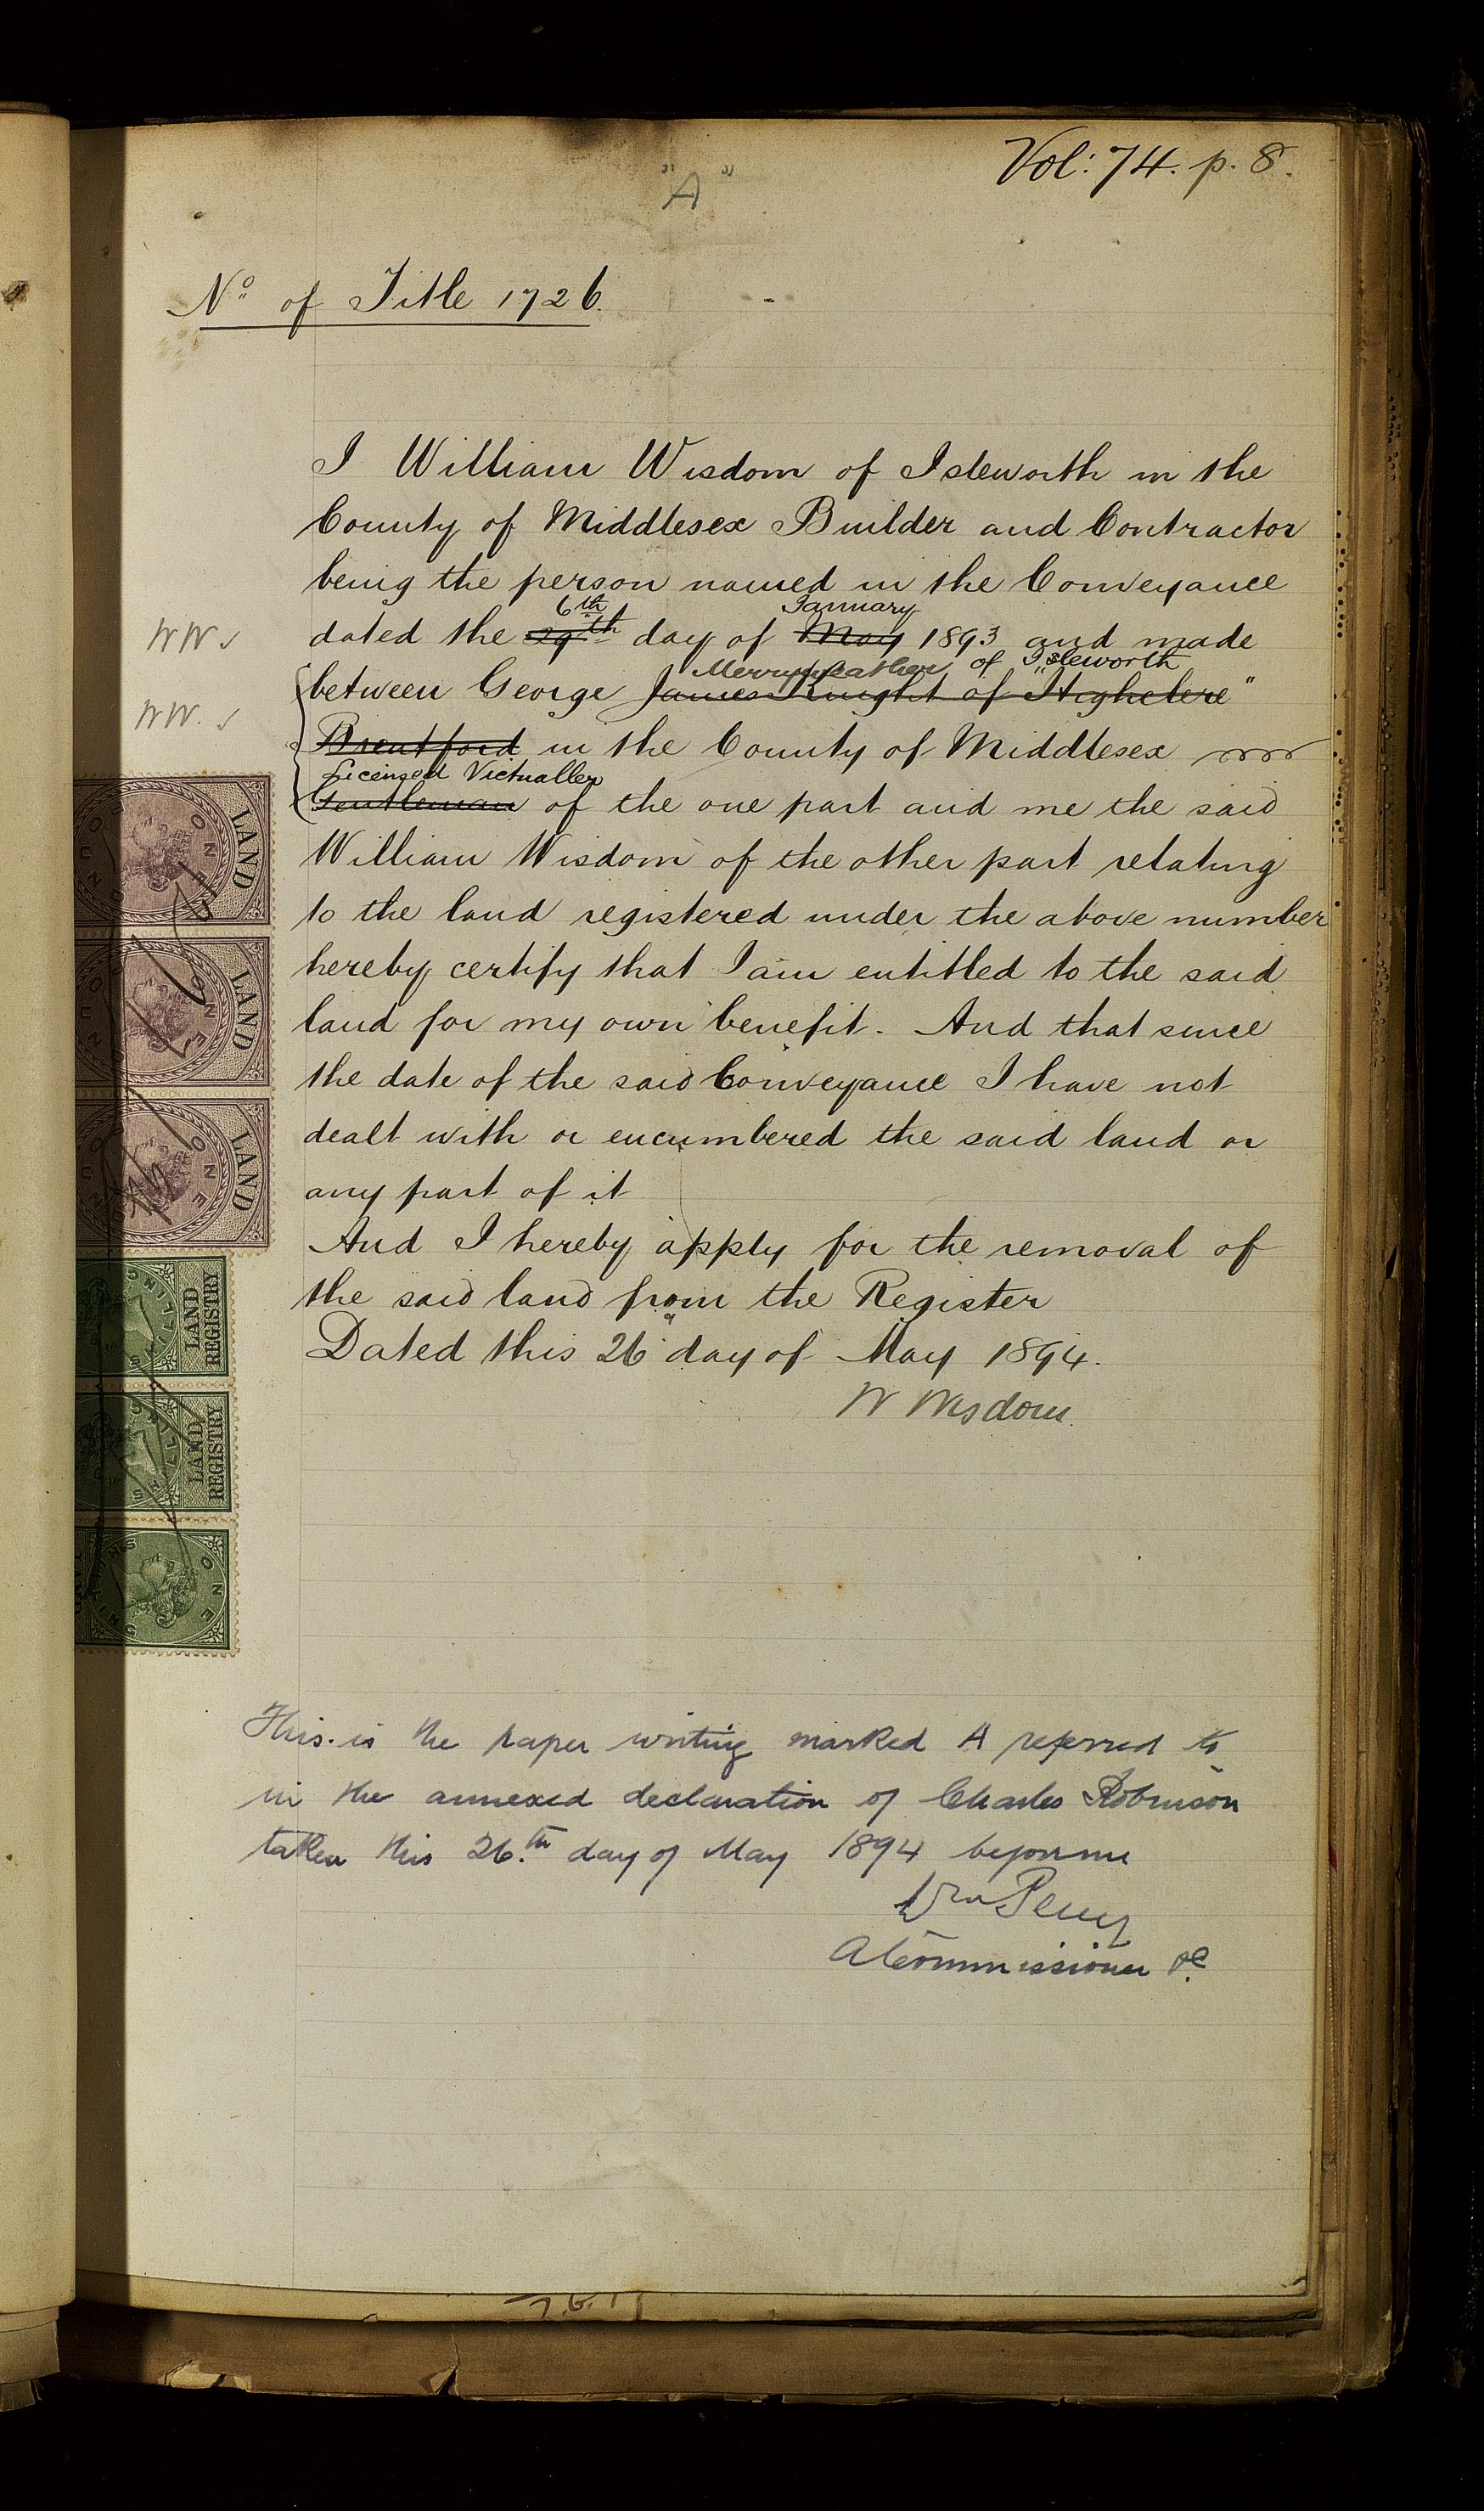 Vol: 74. p. 8.
"A"
No of Title 1726.
I William Wisdom of Isleworth in the
County of Middlesex Builder and Contractor
being the person named in the Conveyance
6th January
dated the 29th day of May 1893 and made
W W
Merryweather of Isleworth
between George James Knight of "Highclere"
W W.
Brentford in the County of Middlesex
Licensed Victualler
Gentleman of the one part and me the said
William Wisdom of the other part relating
to the land registered under the above number
hereby certify that I am entitled to the said
land for my own benefit. And that since
the date of the said Conveyance I have not
dealt with or encumbered the said land or
any part of it
And I hereby apply for the removal of
the said land from the Register
Dated this 26 day of May 1894.
W Wisdom.
LAND
ONE
LAND
ONE
LAND
ONE
LAND REGISTRY
LAND REGISTRY
ONE
This is the paper writing marked A referred to
in the annexed declaration of Charles Robinson
taken this 26.th day of May 1894 before me
Wm
A Commissioner &c